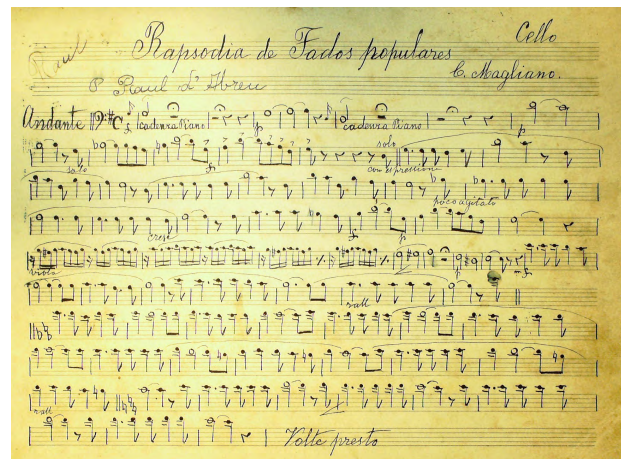 Cello
Rapsodia de Fados populares
C. Magliano.
P Raul d'Abreu
Andante
cadenza Piano
cadenza Piano
p
p
solo
con espressione
solo
poco agitato
cresc
p
viola
p
mf
rall
rall
Volte presto